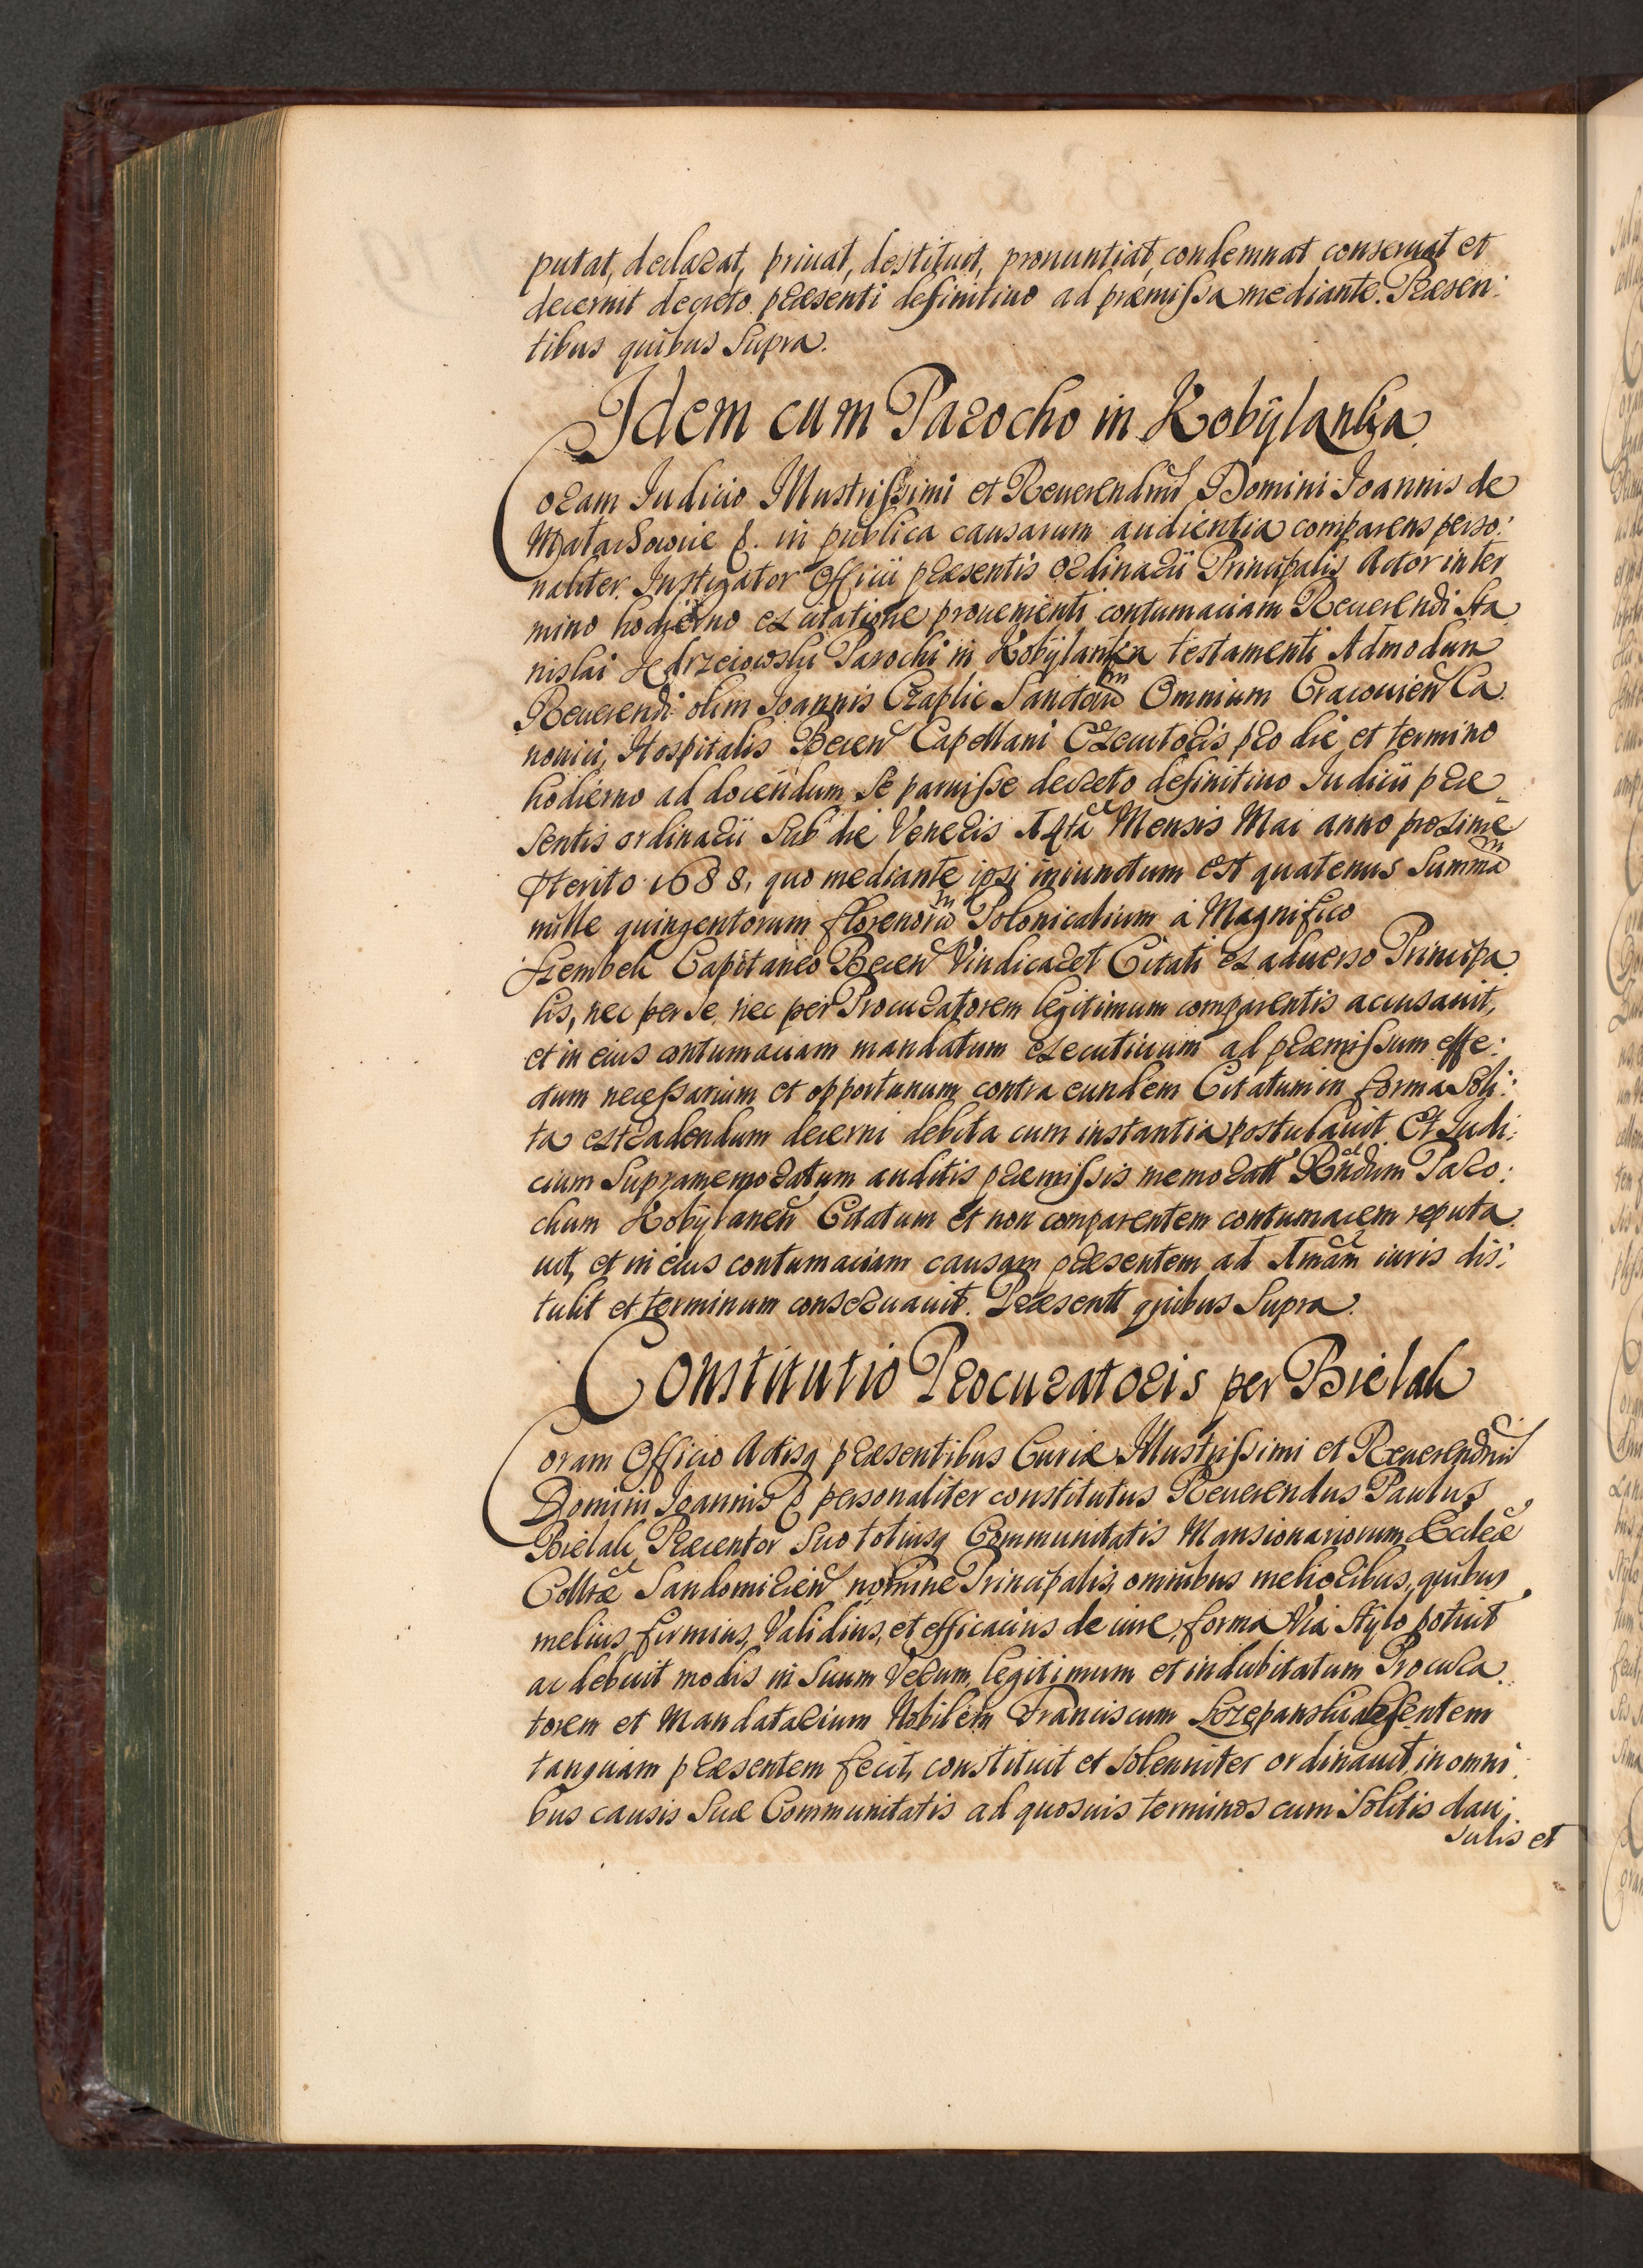 putat, declarat, priuat, destituit, pronuntiat, condemnat conseruat et
decernit decreto præsenti definitiuo ad præmissa mediante. Præsen:
tibus quibus Supra.
Idem cum Parocho in Kobÿlanka.
Coram Iudicio Illustrissimi et Reuerendmi Domini Ioannis de
Małachowice &. in publica causarum audientia comparens perso:
naliter Instigator Officii præsentis ordinarii Principalis Actor in ter
mino hodierno ex citatione proueniente contumaciam Reuerendi Sta
nislai Jedrzeiowski Parochi in Kobÿlanka testamenti Admodum
Reuerendi olim Joannis Czaplic Sanctorum Omnium Cracouien Ca.
nonici, Hospitalis Becen Capellani Executoris pro die et termino
hodierno ad docendum Se paruisse decreto definitiuo Iudicii præ
sentis ordinarii Sub die Veneris 14ta Mensis Mai anno proxime
pterito 1688, quo mediante ipsi iniunctum est quatenus Summam
mille quingentorum florenorum Polonicalium à Magnifico
Szembek Capitaneo Becen Vindicaret Citati ex aduerso Principa.
lis, nec per Se, nec per Procuratorem legitimum comparentis accusauit,
et in eius contumaciam mandatum executiuum ad præmissum effe:
ctum necessarium et opportunum contra eundem Citatum in forma Soli:
ta extradendum decerni debita cum instantia postulauit. Et Iudi:
cium Supramemoratum auditis præmissis memoratt Rndum Paro:
chum Kobÿlanen Citatum et non comparentem contumacem reputa.
uit, et in eius contumaciam causam præsentem ad Amam iuris dis:
tulit et terminum conseruauit. Præsentt quibus Supra.
Constitutio Procuratoris per Bielak
Coram Officio Actisq præsentibus Curiæ Illustrissimi et Reuerendmi
Domini Joannis & personaliter constitutus Reuerendus Paulus
Bielak, Præcentor Suo totiusq Communitatis Mansionariorum Ecclæ
Colltæ Sandomirien nomine Principalis, omnibus melioribus, quibus
melius, firmius, Validius, et efficacius de iure, forma Via Stÿlo potuit
ac debuit modis in Suum Verum, legitimum et indubitatum Procura.
torem et Mandatarium Nobilem Franciscum Szczepanski absentem
tanquam præsentem fecit, constituit et Solenniter ordinauit, in omni
bus causis Suæ Communitatis ad quosuis terminos cum Solitis clau:
sulis et